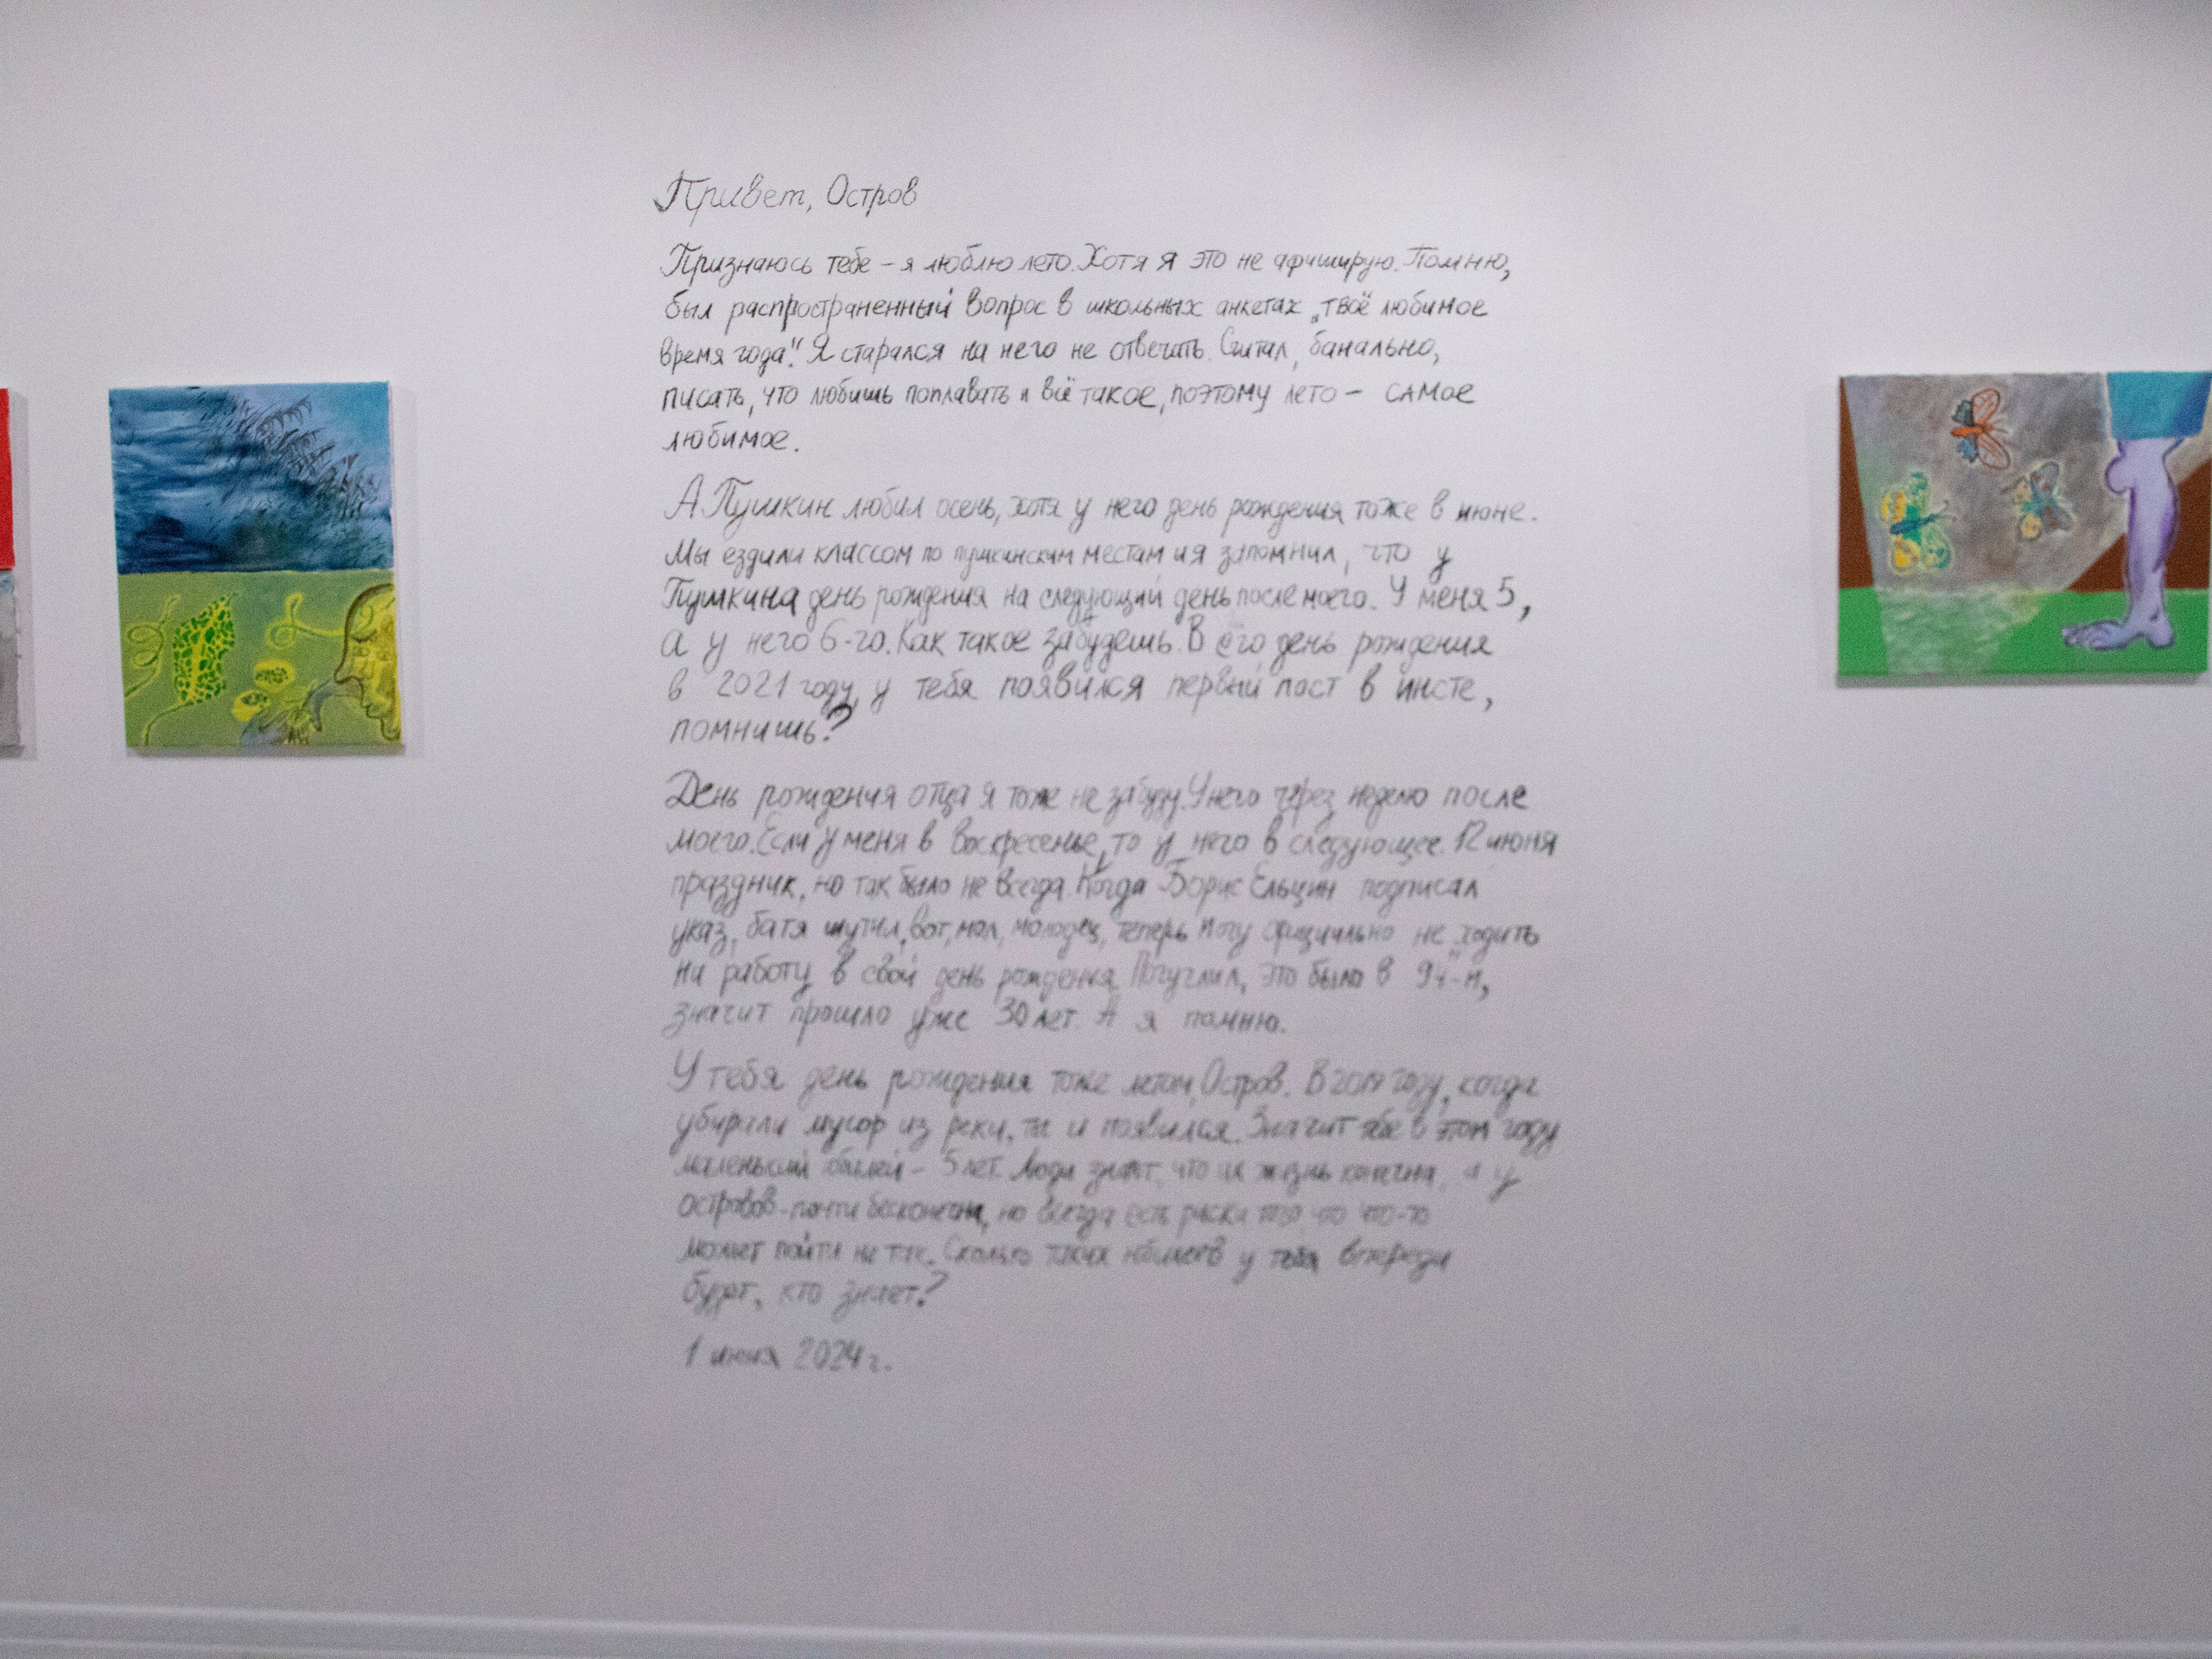 Привет, Остров
Признаюсь тебе – я люблю лето. Хотя я это не афиширую. Помню,
был распространенный вопрос в школьных анкетах „твоё любимое
время года“. Я старался на него не отвечать. Считал, банально,
писать, что любишь поплавать и всё такое, поэтому лето – самое
любимое.
А Пушкин любил осень, хотя у него день рождения тоже в июне.
Мы ездили классом по пушкинским местам и я запомнил, что у
Пушкина день рождения на следующий день после моего. У меня 5,
а у него 6-го. Как такое забудешь. В его день рождения
в 2021 году, у тебя появился первый пост в инсте,
помнишь?
День рождения отца я тоже не забуду. У него через неделю после
моего. Если у меня в воскресенье, то у него в следующее. 12 июня
праздник, но так было не всегда. Когда Борис Ельцин подписал
указ, батя шутил, вот, мол, молодец, теперь могу официально не ходить
на работу в свой день рождения. Погуглил, это было в 94-м,
значит прошло уже 30 лет. А я помню.
У тебя день рождения тоже летом, Остров. В 2019 году, когда
убирали мусор из реки, ты и появился. Значит тебе в этом году
маленький юбилей – 5 лет. Люди знают, что их жизнь конечна, а у
островов – почти бесконечна, но всегда есть риски того, что что-то
может пойти не так. Сколько таких юбилеев у тебя впереди
будет, кто знает?
1 июня 2024 г.